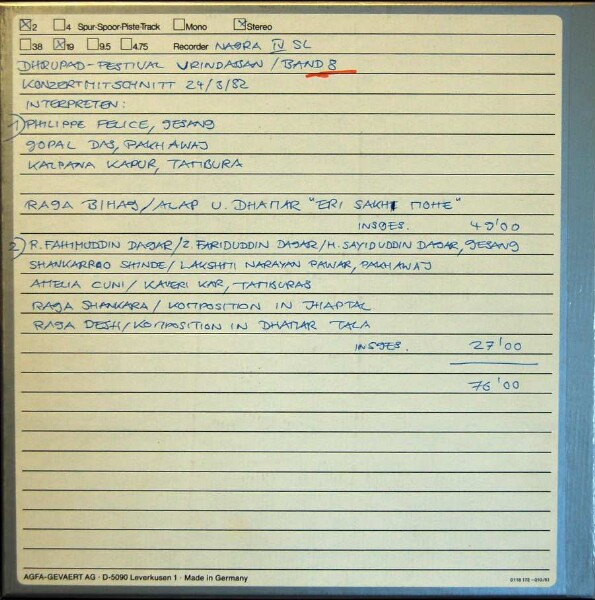 ☒2 ☐4 Spur-Spoor-Piste-Track ☐Mono ☒Stereo
☐38 ☒19 ☐9.5 ☐4.75 Recorder NAGRA IV SL
DHRUPAD-FESTIVAL VRINDABAN / BAND 8
KONZERTMITSCHNITT 24/3/82
INTERPRETEN:
1) PHILIPPE FELICE, GESANG
GOPAL DAS, PAKHAWAJ
KALPANA KAPUR, TAMBURA
RAGA BIHAG / ALAP U. DHAMAR "ERI SAKHI MOHE"
INSGES. 49'00
2) R. FAHIMUDDIN DAGAR / Z. FARIDUDDIN DAGAR / H. SAYIDUDDIN DAGAR, GESANG
SHANKARRAO SHINDE / LAKSHMI NARAYAN PAWAR, PAKHAWAJ
AMELIA CUNI / KAVERI KAR, TAMBURAS
RAGA SHANKARA / KOMPOSITION IN JHAPTAL
RAGA DESH / KOMPOSITION IN DHAMAR TALA
INSGES. 27'00
76'00
AGFA-GEVAERT AG · D-5090 Leverkusen 1 · Made in Germany